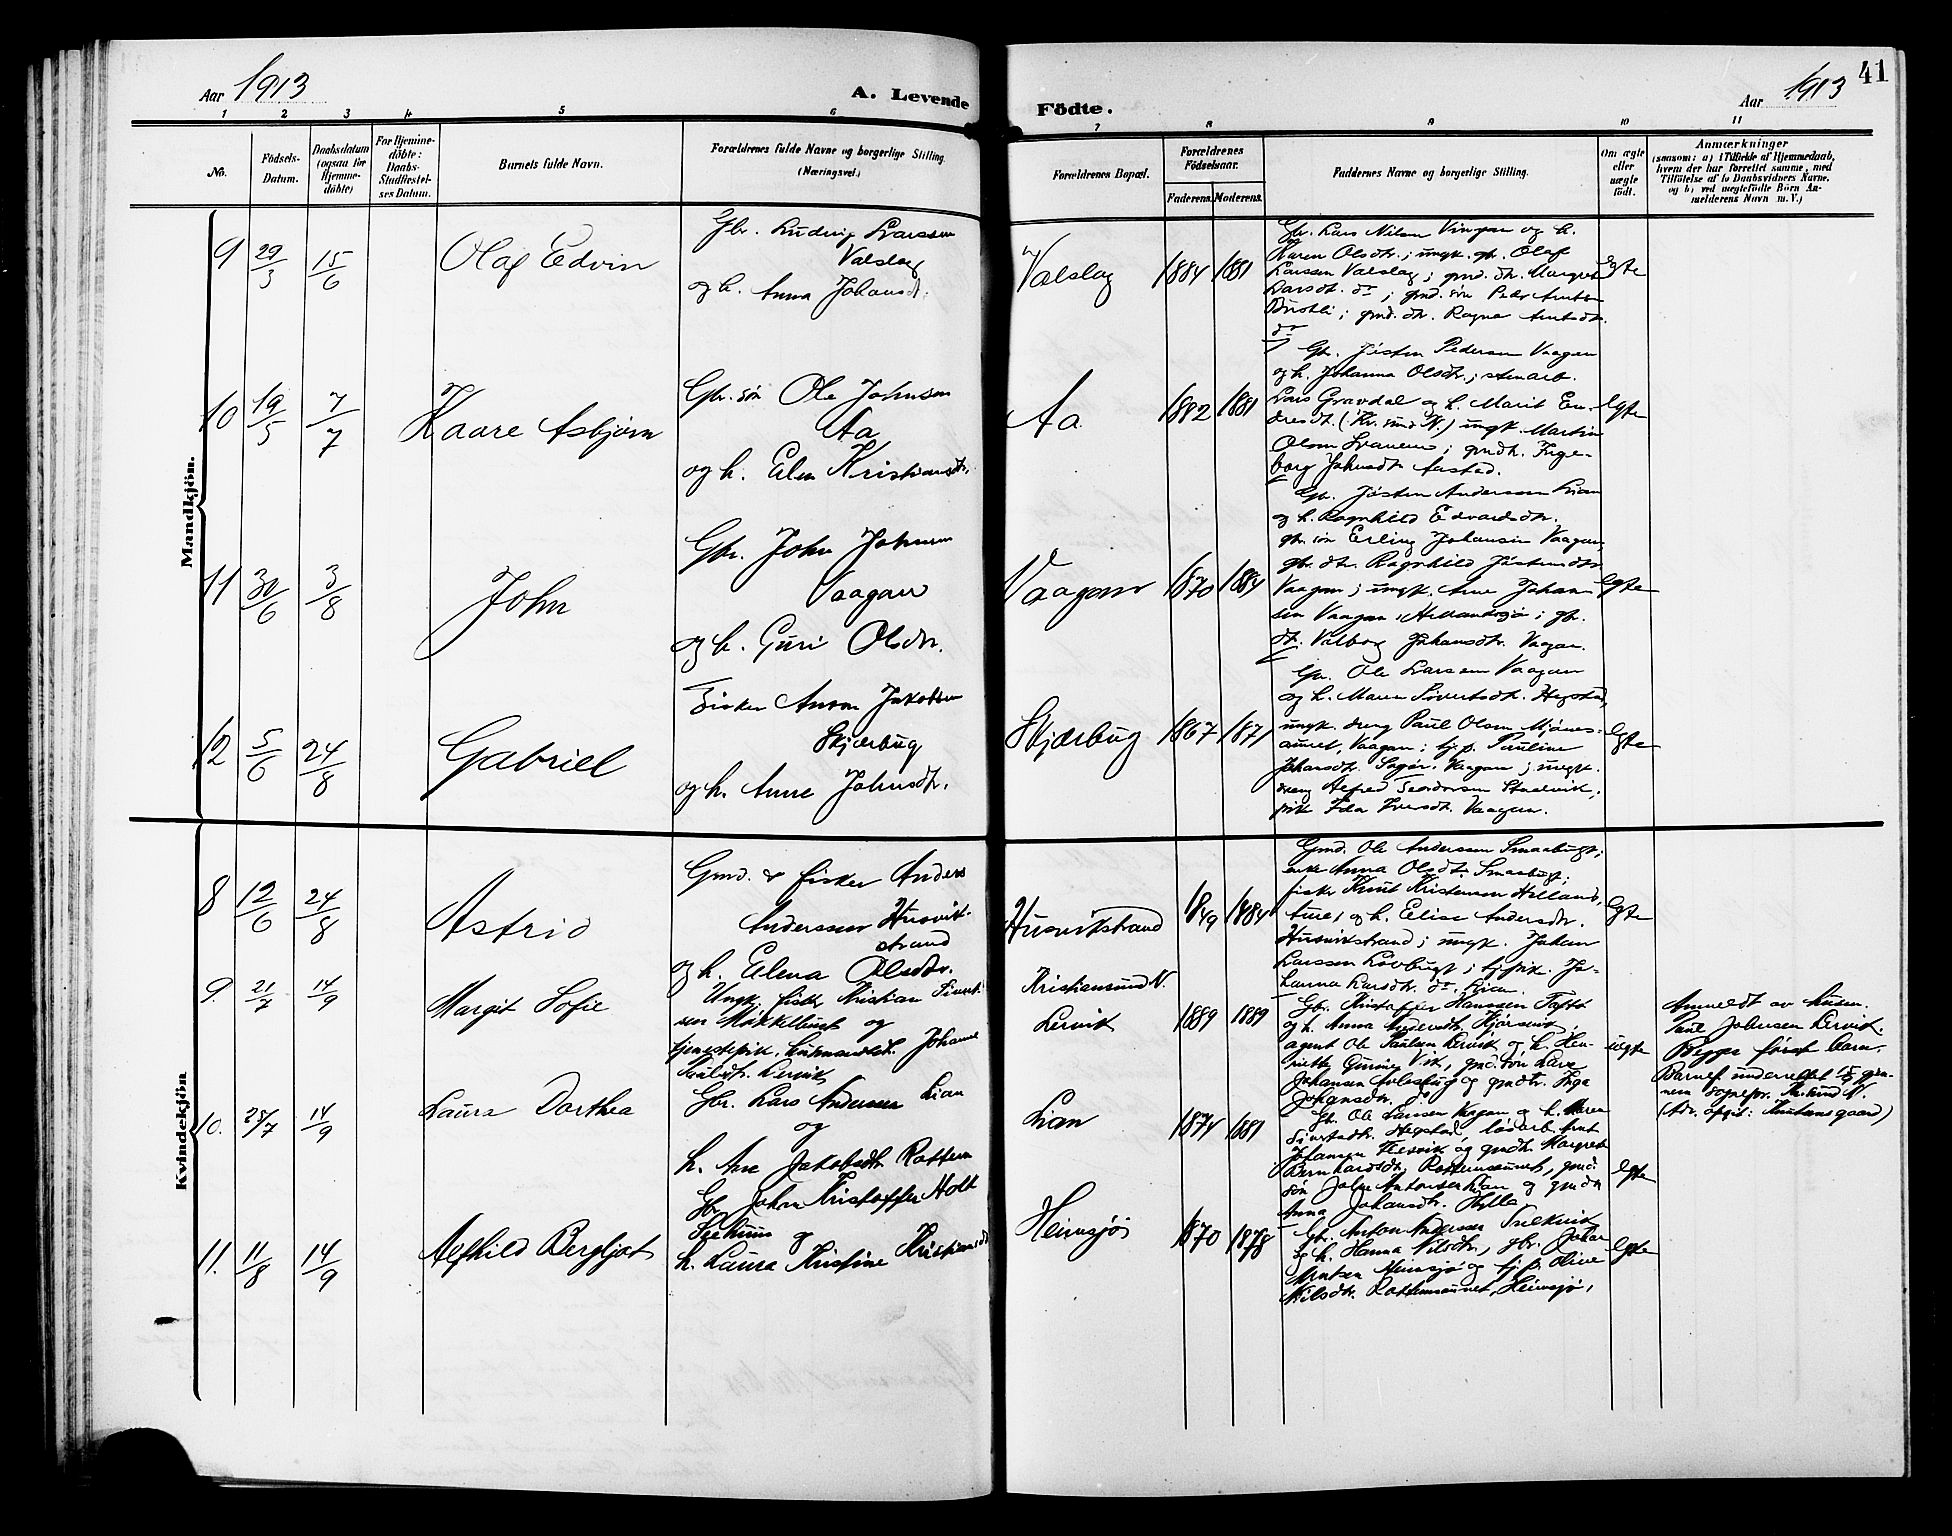 Aar 1913
A. Levende
Födte.
Aar 1913
41
1 2 3 4 5 6 7 8 9 10 11
No.
Födsels-
Datum.
Daabsdatum
(ogsaa for
Hjemme-
döbte)
For Hjemme-
döbte:
Daabs-
Stadfæstel-
ses Datum.
Barnets fulde Navn.
Forældrenes fulde Navne og borgerlige Stilling.
(Næringsvei.)
Forældrenes Bopæl.
Forældrenes
Födselsaar.
Faderens. Moderens.
Faddernes Navne og borgerlige Stilling.
Om ægte
eller
uægte
födt.
Anmærkninger
(saasom: a) i Tilfælde af Hjemmedaab,
hvem der har forrettet samme, med
Tilföielse af to Daabsvidners Navne,
og b) ved uægtefödte Börn An-
melderens Navn m. V.)
Mandkjön.
9 29/3 15/6 Olaf Edvin
Gbr. Ludvig Larssen
Valslag
og h. Anna Johansdt.
Valslag 1884 1881
Gbr. Lars Nilsen Vingan og h.
Karen Olsdtr.; ungk. gb. Olaf
Larssen Valslag; gmd. dtr. Margret
Larsdt. do; gmd. søn Peder Arntsen
Bushli; gmd. dtr. Ragna Arntsdtr.
do
Egte
10 19/5 7/7 Kaare Asbjørn
Gbr. søn Ole Johnsen
Aa
og h. Elen Kristiansdt.
Aa 1882 1881
Gbr. Jøsten Pedersen Vaagan
og h. Johanna Olsdtr.;
Lars Gravdal og h. Marit En-
dresdt. (Kr.sund N.) ungk. Martin
Olsen; gmdtr. Inge-
borg Johnsdtr. Aastad.
Egte
11 30/6 3/8 John
Gbr. John Johnsen
Vaagan
og h. Guri Olsdtr.
Vaagan 1870 1884
Gbr. Jøsten Andersen Lian
og h. Ragnhild Edvardsdtr.
gbr. søn Erling Johansen Vaagan,
gbr. dtr. Ragnhild Jøstensdtr.
Vaagan; ungk. Arne Johan-
sen Vaagan, Hellandsjø; gbr.
dt. Valborg Johansdtr. Vaagan.
Egte
12 5/6 24/8 Gabriel
Fisker Anton Jakobsen
Skjærbug
og h. Anne Johnsdtr.
Skjærbug 1867 1871
Gbr. Ole Larssen Vaagan
og h. Maren Sivertsdtr. Hegstad,
ungk. dreng Paul Olsen Mjønes-
aunet, Vaagan; tj.p. Pauline
Johansdtr. Vaagan; ungk.
dreng Alfred Teodorsen
pike Ida Iversdtr. Vaagan.
Egte
Kvindekjön
8 12/6 24/8 Astrid
Gmd. & fisker Anders
Anderssen Husvik-
strand
og h. Elena Olsdtr.
Husvikstrand 1849 1884
Gmd. Ole Anderssen Smaabugt;
enke Anna Olsdt. Smaabugt;
fisker Knut Kristensen Helland,
Aure, og h. Elise Andersdtr.
Husvikstrand; ungk. Johan
Larssen Lovbugt; tj.pik. Jo-
hanna Larsdtr. do, Lian.
Egte
9. 21/7 14/9 Margit Sofie
Ungk. fisker Kristian Sivert-
sen Mökkelbust og
tjenestepik. husmandsdt. Johanne
Paulsdtr. Lervik
Kristiansund N.
Lervik 1889 1889
Gbr. Kristoffer Hanssen Taftø
og h. Anna Andersdtr. Kjørsvik,
agent Ole Paulsen Lervik og h. Hen-
riette Vik, gmd. søn Lars
Johansen og gmdtr. Inga
Johansdtr. do
uegte
Anmeldt av husm.
Paul Johnsen Lervik.
Begges første barn.
Barnef. underrettet 15/9 gjen-
nem sognepr. Kr.sund N.
(Adr. opgit: Knutansgaard)
10. 25/7 14/9 Laura Dorthea
Gbr. Lars Andersen Lian
og
h. Ane Jakobsdtr. Rottem
Lian 1874 1881
Gbr. Ole Larssen Vagan og h. Maren
Sivertsdtr. Hegstad, løsarb. Arnt
Johansen og gmdtr. Margrete
Bernhardsdtr. Rottemsaunet, gmd.
søn Johan Antonsen Lian og gmdtr
Anna Johansdtr. Hylla
Egte
11. 11/8 14/9 Alfhild Bergljot
Gbr. Johan Kristoffer Holt
og
h. Laura Kristine Kristiansdt
Heimsjø 1870 1878
Gbr. Anton Andersen
og h. Hanna Nilsdtr., gbr. Johan
Arntsen Heimsjø og tj.p. Oline
Nilsdtr. Rottemsaunet, Heimsjø,
Egte